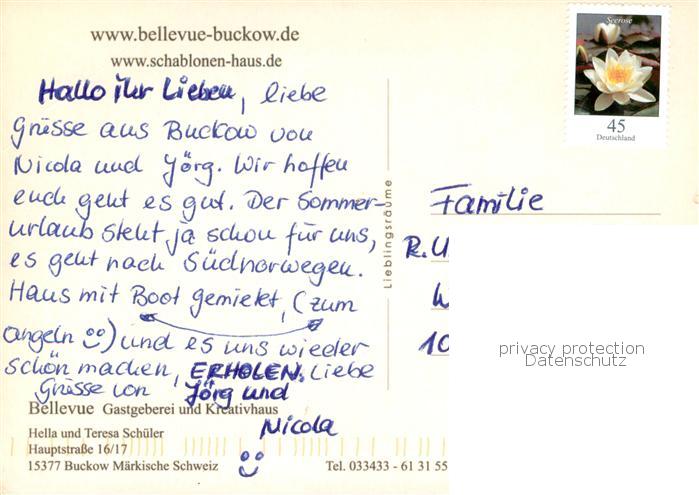 www.bellevue-buckow.de
www.schablonen-haus.de
Hallo ihr Lieben, liebe
Grüsse aus Buckow von
Nicola und Jörg. Wir hoffen
euch geht es gut. Der Sommer-
urlaub steht ja schon für uns,
es geht nach Südnorwegen.
Haus mit Boot gemietet, (zum
angeln) und es uns wieder
schön machen, ERHOLEN. Liebe
Grüsse von Jörg und
Nicola
Bellevue Gastgeberei und Kreativhaus
Hella und Teresa Schüler
Hauptstraße 16/17
15377 Buckow Märkische Schweiz
Tel. 033433 - 61 31 55
Lieblingsräume
Seerose
45
Deutschland
Familie
R.U
W
10
privacy protection
Datenschutz